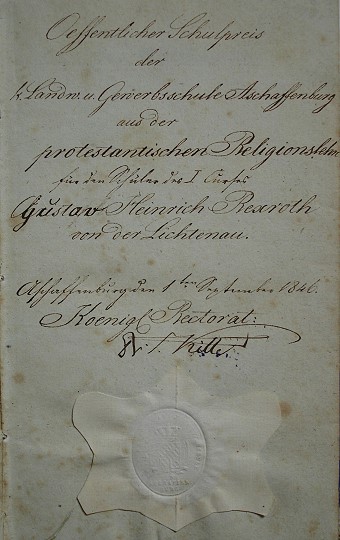 Oeffentlicher Schulpreis
der
k. Landw. u. Gewerbsschule Aschaffenburg
aus der
protestantischen Religionslehre
für den Schüler des I Curses
Gustav Heinrich Rexroth
von der Lichtenau.
Aschaffenburg den 1ten September 1846.
Koenigl Rectorat: